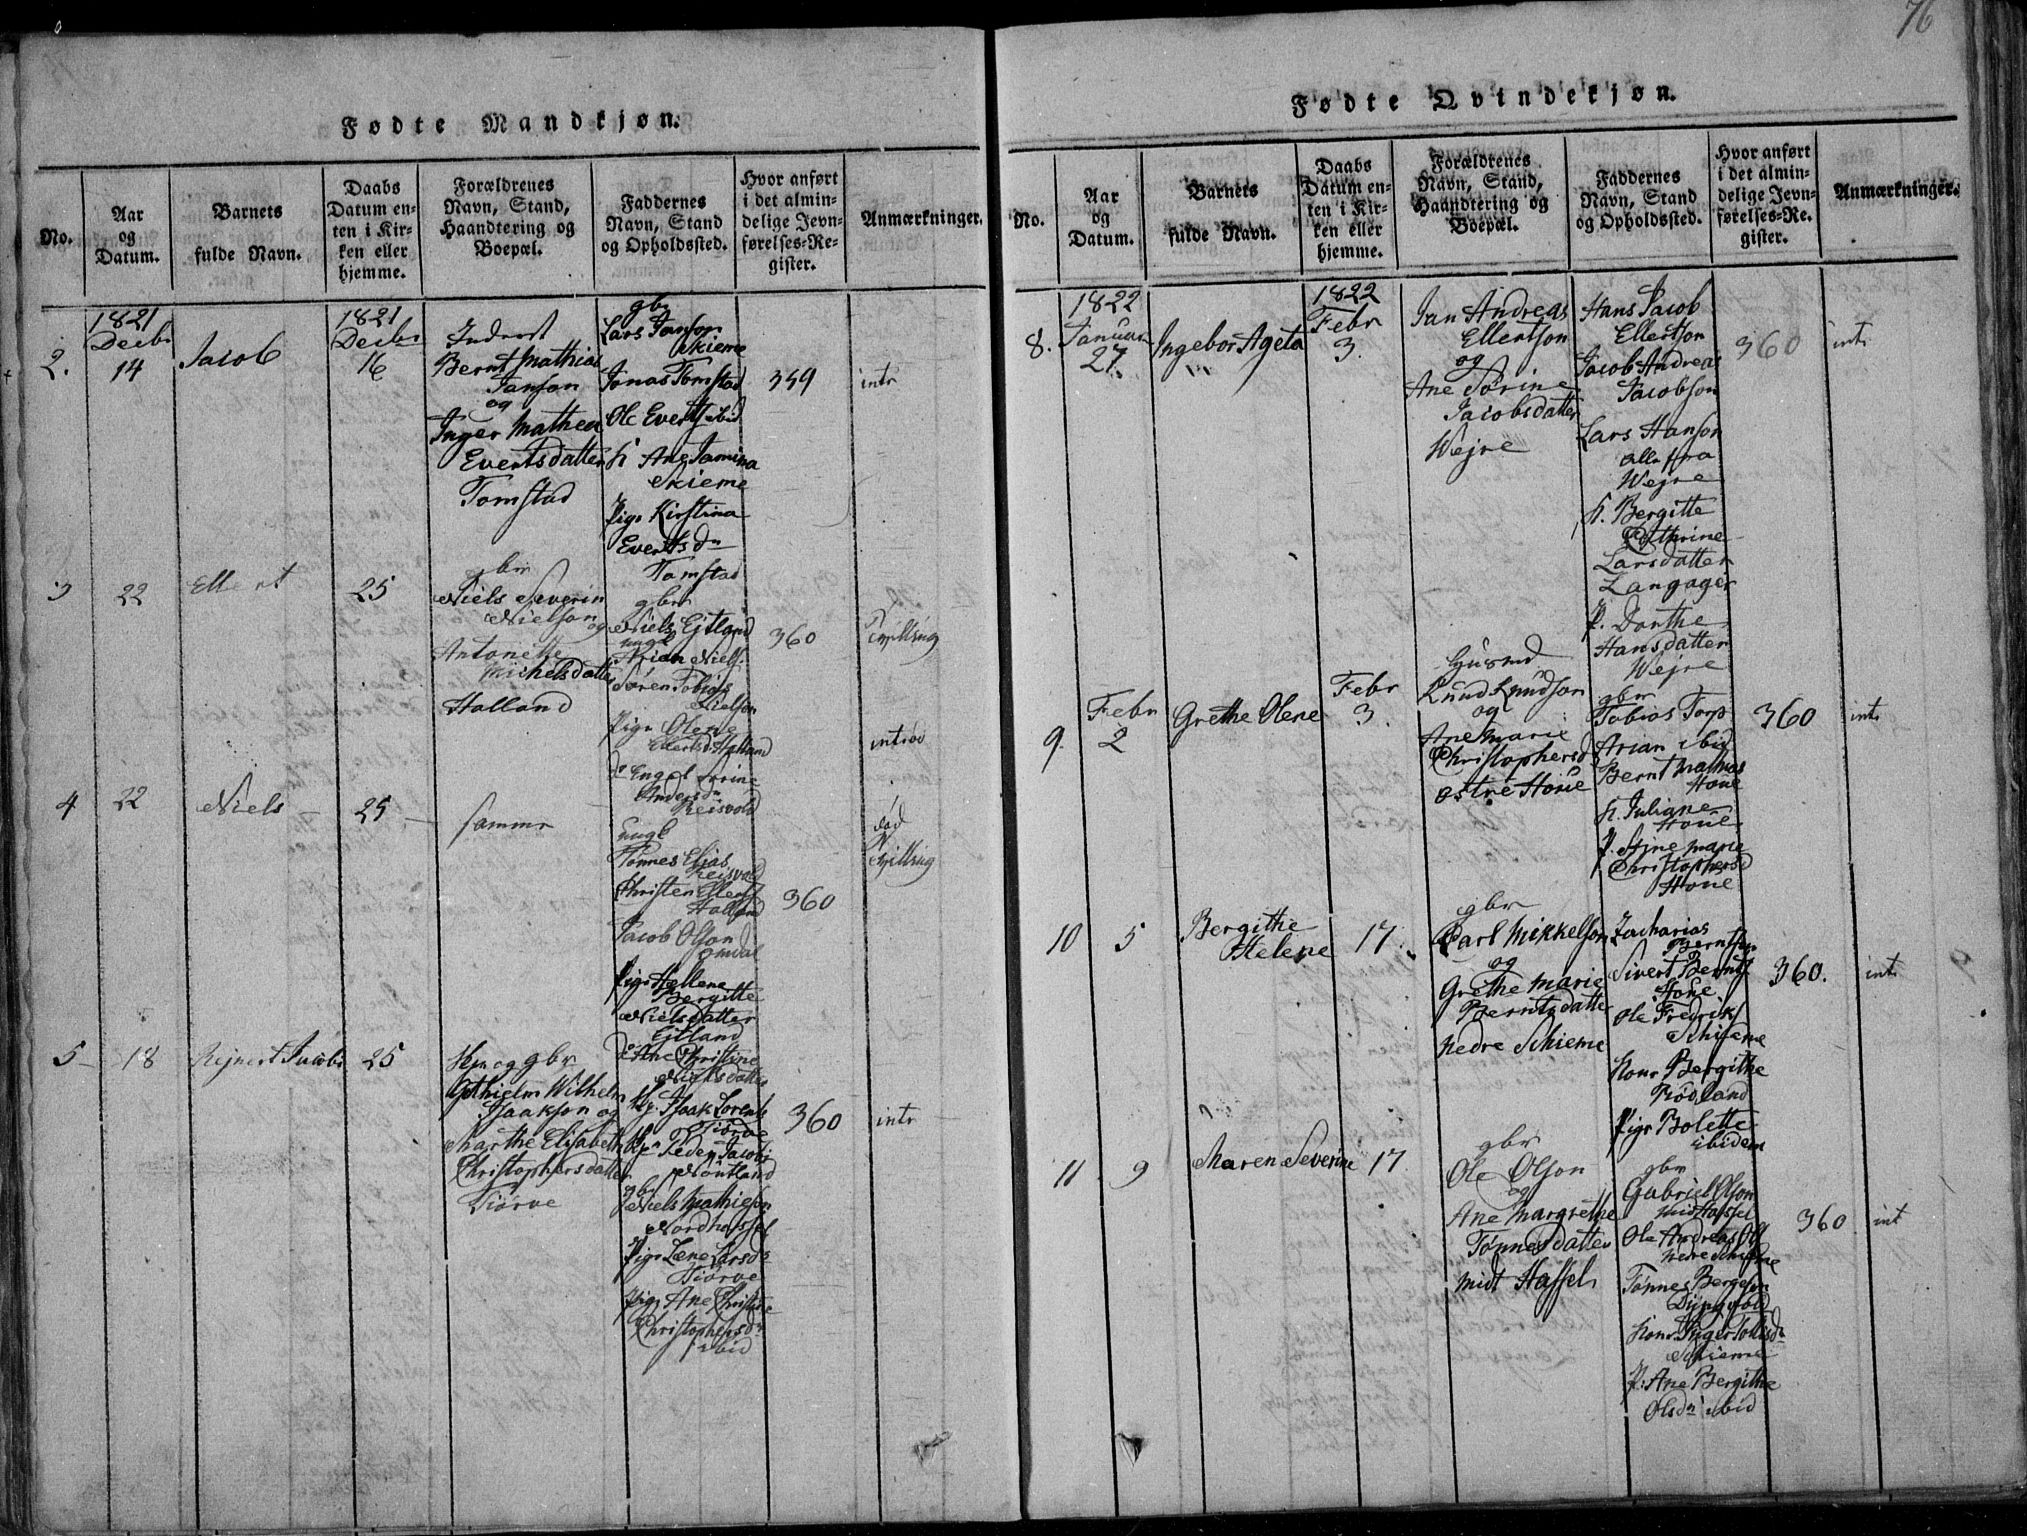 76
Fødte Mandkjøn.
No.
Aar
og
Datum.
Barnets
fulde Navn.
Daabs
Datum en-
ten i Kir-
ken eller
hjemme.
Forældrenes
Navn, Stand,
Haandtering og
Boepæl.
Faddernes
Navn, Stand
og Opholdssted.
Hvor anført
i det almin-
delige Jevn-
førelses-Re-
gister.
Anmærkninger.
2.
1821
Decbr
14
Jacob
1821
Decbr
16
Inderst
Bernt Mathias
Janson
og
Inger Mathea
Evertsdatter
Tomstad
gbr
Lars Janson
Skieme
Jonas Tomstad
Ole Everts ibid
K Ane Jamina
Skieme
Pige Kirstina
Everts dn
Tomstad
359
intr
3
22
Ellert
25
gbr
Niels Severin
Nielson og
Antonette
Michelsdatter
Halland
gbr
Niels Ejtland
ungk
Arian Niels.
Søren Tobias
Nielson
Pige Olene
Ellertsd Halland
do Engel Serine
Anders dn
Reisvold
360
Tvilling
introd
4
22
Niels
25
samme
ungk
Tønnes Elias
Reisvold
Christen Ellerts
Halland
Jacob Olson
Omdal
Pige Hellene
Bergitte
Nielsdatter
Ejtland
do Ane Christine
Nielsdatter
360
død
Tvilling
5
18
Rejnert Jacob
25
og gbr
Wilhelm
Isaakson og
Marthe Elisabeth
Christophersdatter
Tiørve
Isaak Lorents
Tiørve
Peder Jacobs
Nøutland
gbr
Niels Mathieson
Nordhassel
Pige Lene Larsd
Tiørve
Pige Ane Christine
Christophersdn
ibid
360
intr
Fødte Qvindekjøn.
No.
Aar
og
Datum.
Barnets
fulde Navn.
Daabs
Datum en-
ten i Kir-
ken eller
hjemme.
Forældrenes
Navn, Stand,
Haandtering og
Boepæl.
Faddernes
Navn, Stand
og Opholdssted.
Hvor anført
i det almin-
delige Jevn-
førelses-Re-
gister.
Anmærkninger.
8.
1822
Januar
27.
Ingebor Ageta
1822
Febr
3.
Jan Andreas
Ellertson
og
Ane Sørine
Jacobsdatter
Wejre
Hans Jacob
Ellertson
Jacob Andreas
Jacobson
Lars Hanson
alle fra
Wejre
K. Bergitte
Cathrine
Larsdatter
Langager
P. Dorthe
Hansdatter
Wejre
360
intr
9.
Febr
2
Grethe Olene
Febr
3.
Husmd
Knud Knudson
og
Ane Marie
Christophersd
Østre Houe
gbr
Tobias Torp
Arian ibid
Bernt Mathias
Houe
K. Juliane
Houe
P. Stine Marie
Christophersd
Houe
360
intr
10
5
Bergithe
Helene
17.
gbr
Carl Mikkelson
og
Grethe Marie
Berntsdatter
Nedre Schieme
Zacharias
Berntson
Sivert Bernts
Houe
Ole Fredriks
Schieme
Kone Bergithe
Rødland
Pige Bolette
ibidem
360.
intr
11
9
Maren Severine
17
gbr
Ole Olson
og
Ane Margrethe
Tønnesdatter
Midt Hassel
gbr
Gabriel Olson
Midthassel
Ole Andreas Ols
Nedre Schieme
Tønnes Bergeson
Dyngvold
Kone Inger Tollisdn
Schieme
P. Ane Bergithe
Olsdn ibid
360
intr